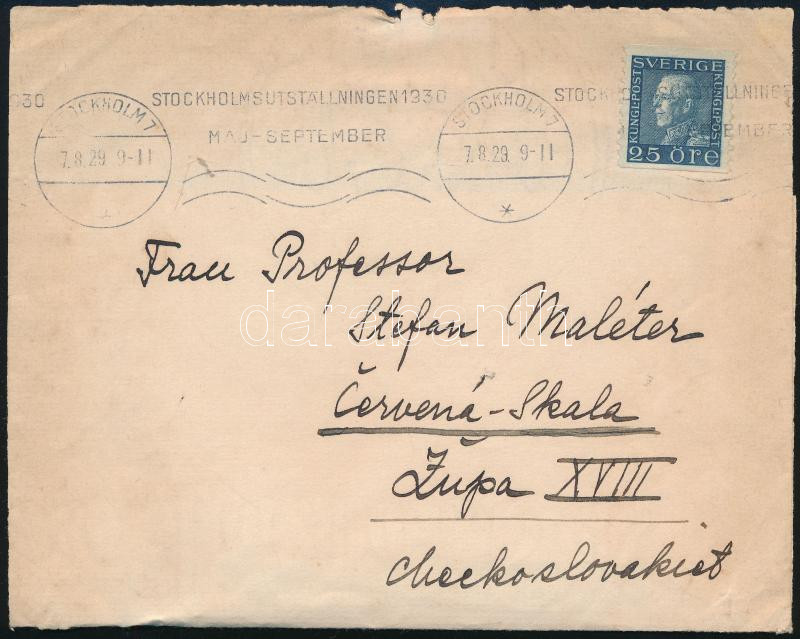 1930 STOCKHOLMSUTSTÄLLNINGEN1930 STOCKHOLMSUTSTÄLLNINGEN
MAJ-SEPTEMBER
STOCKHOLM 7
7.8.29. 9-11
STOCKHOLM 7
7.8.29. 9-11
SVERIGE
KUNGL·POST
KUNGL·POST
25 ÖRE
Frau Professor
Stefan Maléter
Červená-Skala
Župa XVIII
checkoslovakiet
darabanth